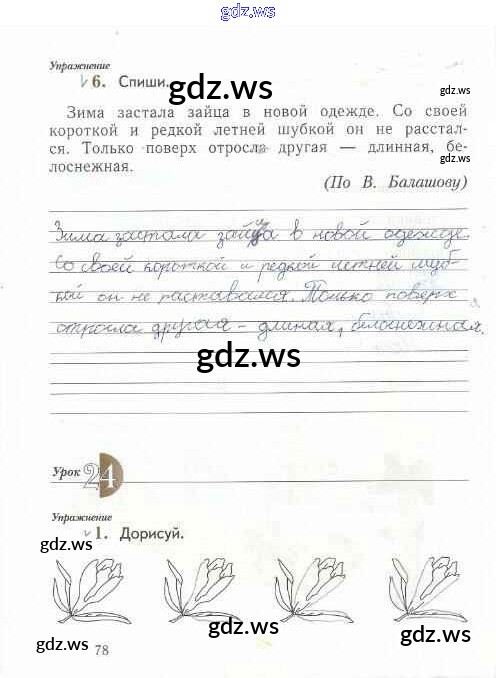 gdz.ws
Упражнение
6. Спиши.
gdz.ws
gdz.ws
Зима застала зайца в новой одежде. Со своей
короткой и редкой летней шубкой он не расстал-
ся. Только поверх отросла другая — длинная, бе-
лоснежная.
gdz.ws
(По В. Балашову)
Зима застала зайца в новой одежде.
Со своей короткой и редкой летней шуб-
кой он не раставался. Только поверх
отросла другая – длиная, белоснежная.
gdz.ws
Урок 24
gdz.ws
Упражнение
1. Дорисуй.
gdz.ws
gdz.ws
gdz.ws
gdz.ws
78